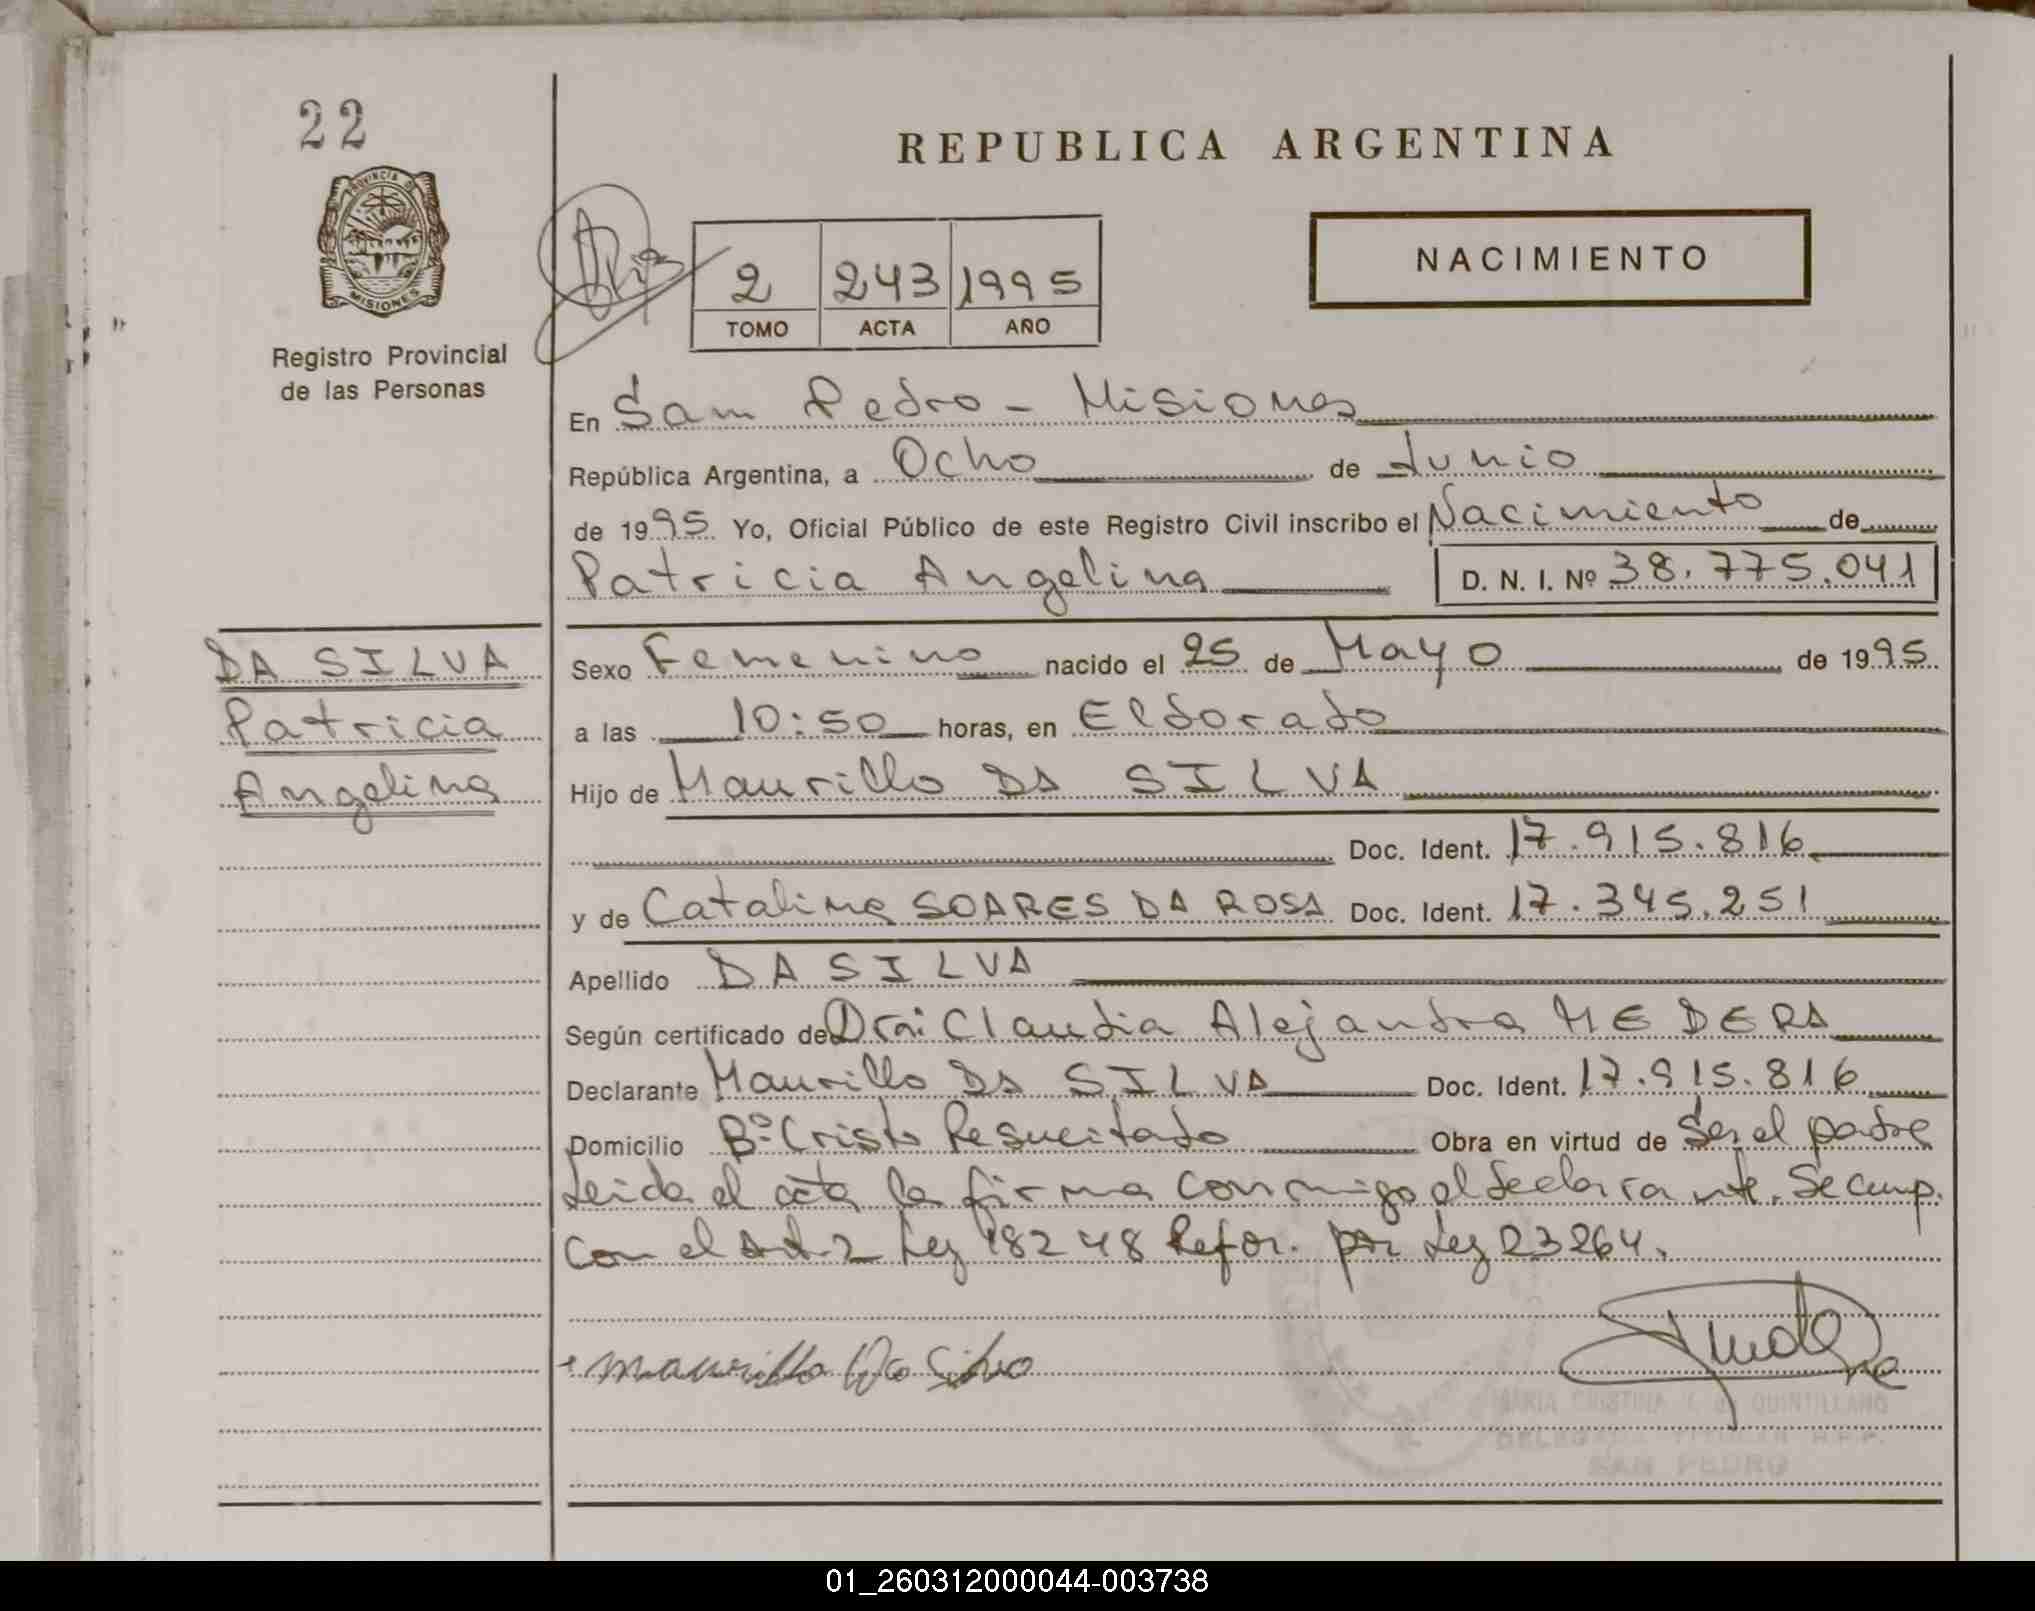 22
PROVINCIA DE
MISIONES
Registro Provincial
de las Personas
REPUBLICA ARGENTINA
NACIMIENTO
2 243 1995
TOMO ACTA AÑO
En San Pedro - Misiones
República Argentina, a Ocho de Junio
de 1995 Yo, Oficial Público de este Registro Civil inscribo el Nacimiento de
Patricia Angelina D. N. I. Nº 38.775.041
DA SILVA
Patricia
Angelina
Sexo Femenino nacido el 25 de Mayo de 1995
a las 10:50 horas, en Eldorado
Hijo de Maurillo DA SILVA
Doc. Ident. 17.915.816
y de Catalina SOARES DA ROSA Doc. Ident. 17.345.251
Apellido DA SILVA
Según certificado de Dra: Claudia Alejandra MEDERA
Declarante Maurillo DA SILVA Doc. Ident. 17.915.816
Domicilio Bº Cristo Resucitado Obra en virtud de Ser el padre
Leida el acta la firma conmigo el declarante. Se cump.
con el Art. 2 Ley 18248 Refor. por Ley 23264.
Maurillo Da Silva
MARIA CRISTINA QUINTILLANO
DELEGADA TITULAR R.P.P.
SAN PEDRO
01_260312000044-003738